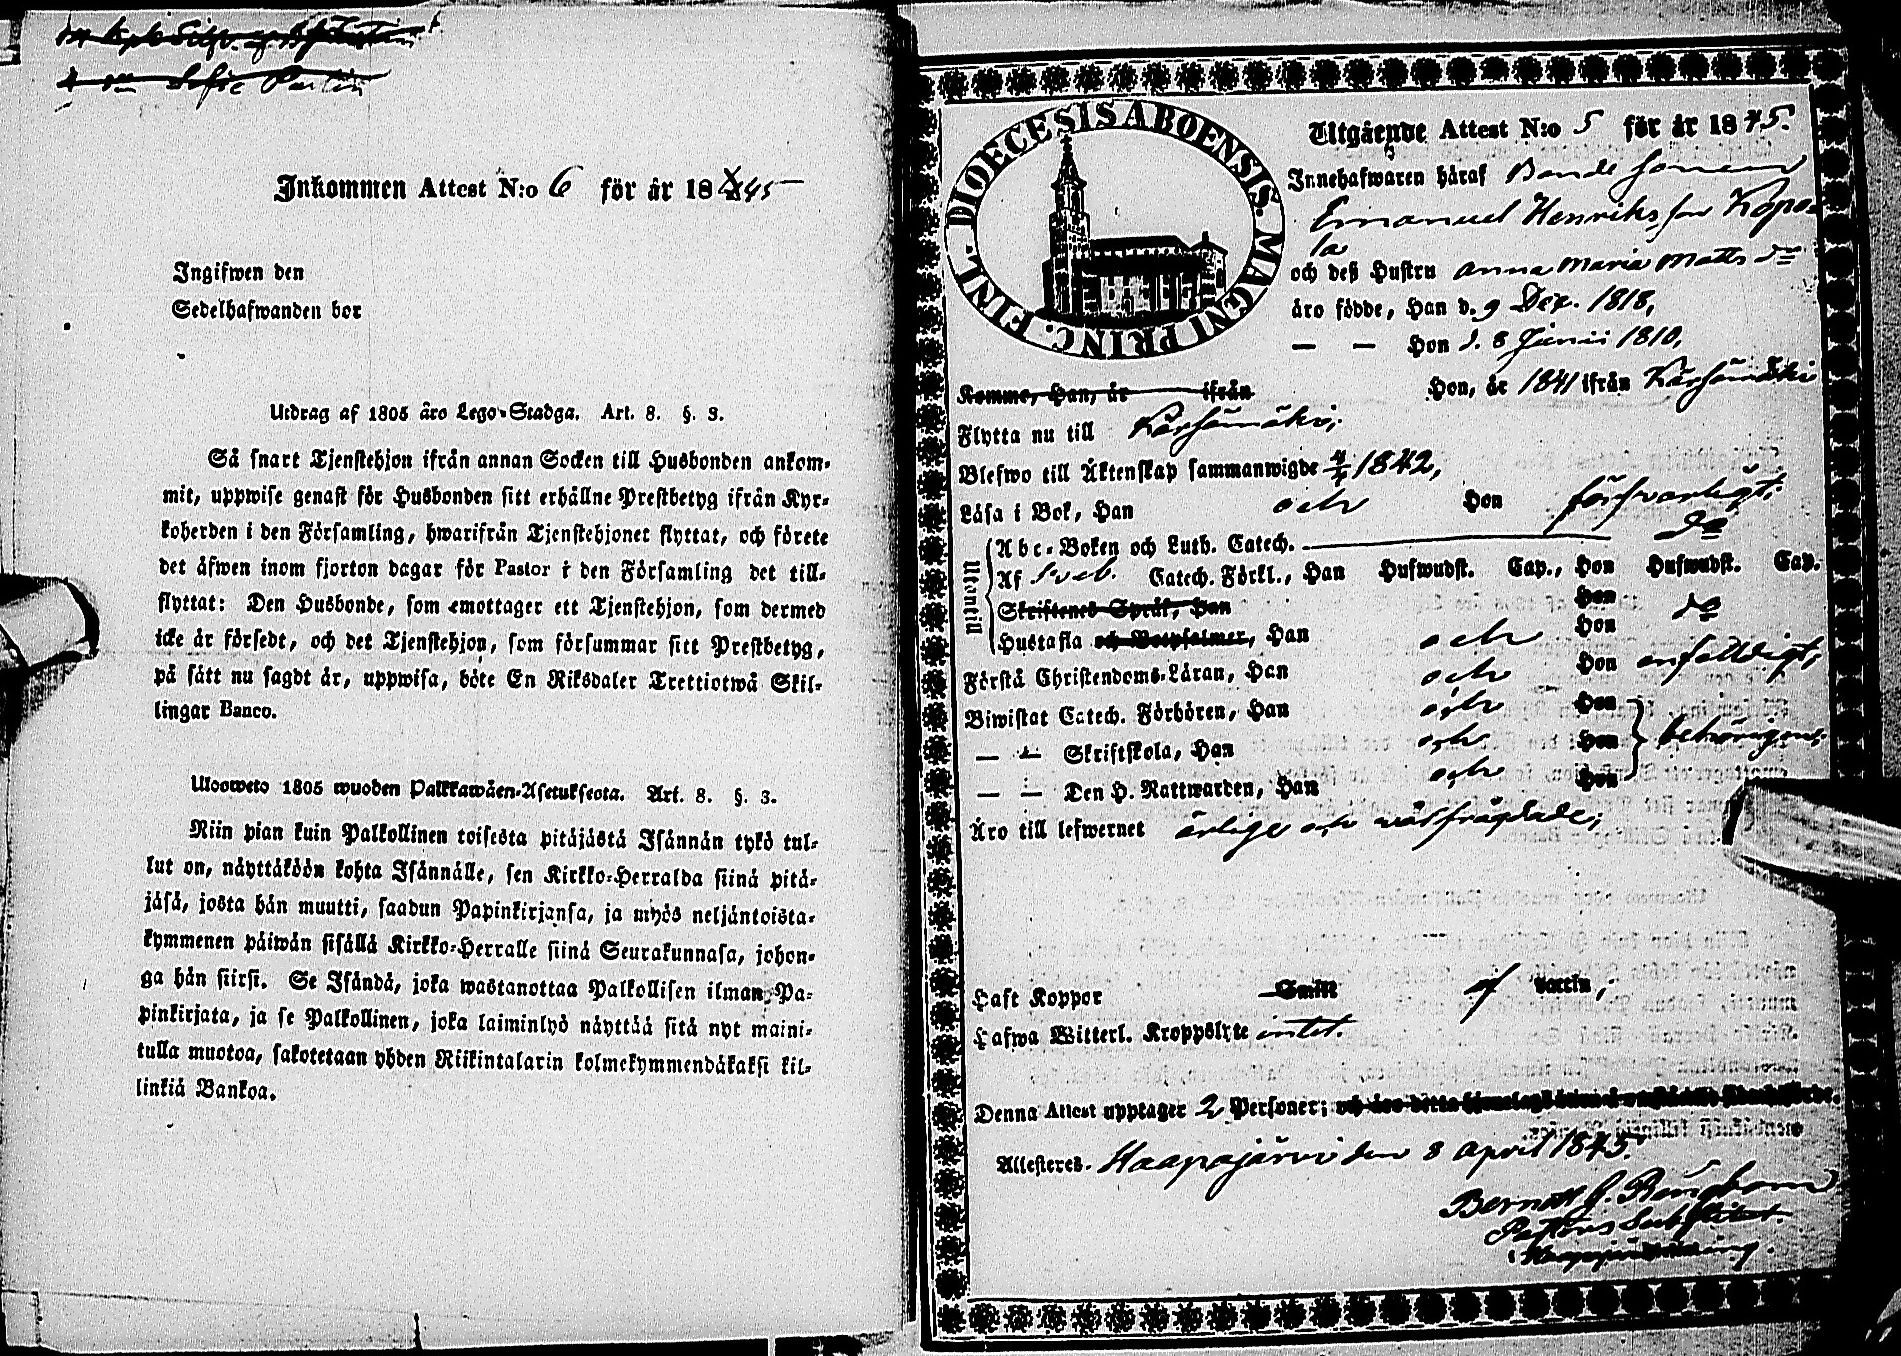 Inkommen Attest N:o 6 för år 1845
Ingifwen den
Sedelhafwanden bor
Utdrag af 1805 års Lego-Stadga. Art. 8. §. 3.
Så snart Tjenstehjon ifrån annan Socken till Husbonden ankom-
mit, uppwise genast för Husbonden sitt erhållne Prestbetyg ifrån Kyr-
koherden i den Församling, hwarifrån Tjenstehjonet flyttat, och förete
det äfwen inom fjorton dagar för Pastor i den Församling det till-
flyttat: Den Husbonde, som emottager ett Tjenstehjon, som dermed
icke är försedt, och det Tjenstehjon, som försummar sitt Prestbetyg,
på sätt nu sagdt är, uppwisa, böte En Riksdaler Trettiotwå Skil-
lingar Banco.
Ulosweto 1805 wuoden Palkkawäen-Asetuksesta. Art. 8. §. 3.
Niin pian kuin Palkollinen toisesta pitäjästä Isännän tykö tul-
lut on, näyttäköön kohta Isännälle, sen Kirkko-Herralda siinä pitä-
jäsä, josta hän muutti, saadun Papinkirjansa, ja myös neljäntoista-
kymmenen päiwän sisällä Kirkko-Herralle siinä Seurakunnasa, johon-
ga hän siirsi. Se Isändä, joka wastanottaa Palkollisen ilman Pa-
pinkirjata, ja se Palkollinen, joka laiminlyö näyttää sitä nyt maini-
tulla muotoa, sakotetaan yhden Riikintalarin kolmekymmendäkaksi kil-
linkiä Bankoa.
DIOECESIS ABOENSIS. MAGNI PRINC. FINL.
Utgående Attest N:o 5 för år 1845.
Innehafwaren häraf Bonde sonen
Emanuel Henriksson Kopa-
la
och deß Hustru Anna Maria Matts dr
äro födde, Han d. 9 Dec. 1818,
— — Hon d. 8 Junii 1810,
Komme, Han, år ifrån Hon, år 1841 ifrån Kärsämäki
Flytta nu till Kärsämäki,
Blefwo till Äktenskap sammanwigde 4/4 1842,
Läsa i Bok, Han och Hon försvarligt,
Utantill
Abc-Boken och Luth. Catech. do
Af Sveb. Catech. Förkl., Han Hufwudst. Cap., Hon Hufwudst. Cap.
Skriftenes Språk, Han Hon do
Hustafla och Botpsalmer, Han och Hon
Förstå Christendoms-Läran, Han och Hon enfalldigt,
Biwistat Catech. Förhören, Han och Hon
— — Skriftskola, Han och Hon behörigen,
— — Den H. Nattwarden, Han och Hon
Äro till lefwernet ärlige och wälfrägdade,
Haft Koppor Smitt af Vaccin,
Hafwa Witterl. Kroppslyte intet.
Denna Attest upptager 2 Personer;
Attesteres. Haapajärvi den 8 April 1845.
Pastors Substitut.